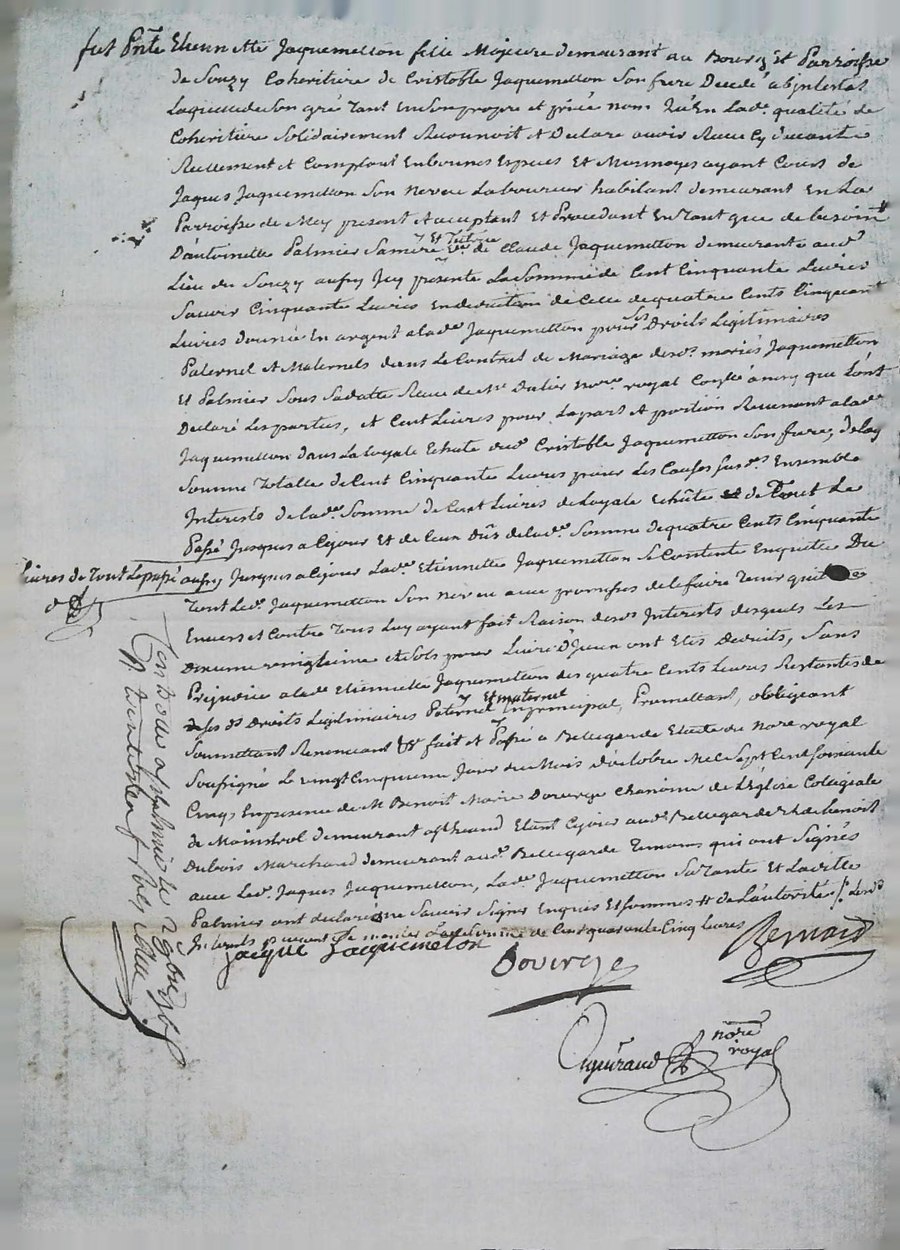 fut Pnte Etiennette Jaquemetton fille Majeure demeurant au Bourg Et Parroisse
de Souzy Coheritiere de Cristoble Jaquemetton Son frere Decedé abintestat
Laquelle de Son gré tant En Son propre et privé nom Qu'En Lade. qualité de
Coheritiere Solidairement Reconnoit et Declare avoir Receu Cy devant
Reellement et Comptant En bonnes Especes Et Monnoyes ayant Cours de
Jaques Jaquemetton Son Neveu Laboureur habitant demeurant En La
Parroisse de Mey present et acceptant Et Procedant En tant que de besoin #
D'antoinette Palmier Sa mere Et Tutrice Vve. de Claude Jaquemetton demeurante aud.
Lieu de Souzy aussy Icy presente La Somme de Cent Cinquante Livres
Savoir Cinquante Livres En deduction de Celle de quatre Cents Cinquante
Livres donnée En argent a lade. Jaquemetton pour Ses Droits Legitimaires
Paternel et Maternels dans Le Contrat de Mariage desds. mariés Jaquemetton
Et Palmier Sous Sa datte Receu de Me. Dulier Nore. royal Conllé ainsy que L'ont
Declaré Les parties, et Cent Livres pour La part et portion Revenant a lade.
Jaquemetton dans La Loyale Echute dud. Cristoble Jaquemetton Son frere, de Laq.
Somme Totalle de Cent Cinquante Livres pour Les Causes susds. Ensemble
Interests de lade. Somme de Cent Livres de Loyale Echûte et de Tout Le
Passé Jusques a Cejour Et de Ceux Dûs de lade. Somme de quatre Cents Cinquante
Livres de Tout Le passé aussy Jusques a Cejour Lade. Etiennette Jaquemetton Se Contente En quitte Du
Tout Led. Jaquemetton Son neveu avec promesses de Le faire Tenir quitte
Envers et Contre Tous Luy ayant fait Raison desds. Interests desquels Les
Deux vingtieme et Sols pour Livre D'Iceux ont Etés Deduits, Sans
Prejudice a lade. Etiennette Jaquemetton des quatre Cents Livres Restantes de
Ses ds. Droits Legitimaires Paternel Et maternel En principal, Promettant, obligeant
Soumettant Renonceant &c fait et Passé a Bellegarde Etude du Nore royal
Soussigné Le vingt Cinquieme Jour du Mois d'octobre Mil Sept Cent Soixante
Cinq, En presence de M. Benoit Marie Dovergé Chanoine de L'Eglise Colegiale
de Montbrol demeurant Etant Cejour aud. Bellegarde Et de benoit
Dubois Marchand demeurant aud. Bellegarde Temoins qui ont Signés
avec Led. Jaques Jaquemetton, Lade. Jaquemetton Sa Tante Et Ladite
Palmier ont declaré ne Savoir Signer Enquis Et Sommés # de L'autorité Lesds.
Interests La Somme de Cent quarante Cinq Livres
Jacque Jacquemeton
Doverge
Bernard
Aguiraud nore
royal